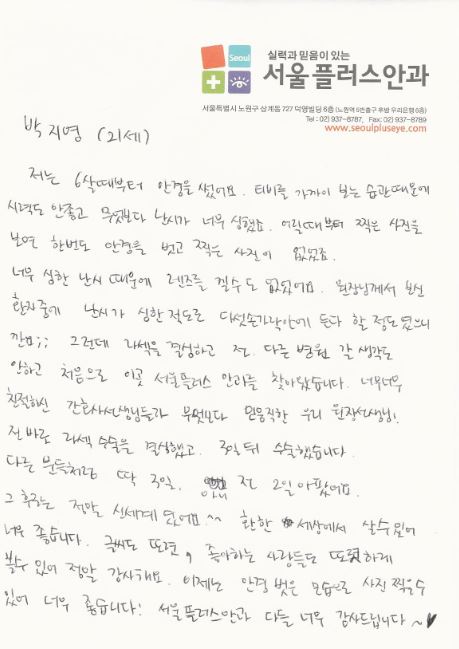 Seoul
실력과 믿음이 있는
서울플러스안과
서울특별시 노원구 상계동 727 덕영빌딩 6층 (노원역 6번출구 후방 우리은행 6층)
Tel : 02) 937-8787, Fax: 02) 937-8789
www.seoulpluseye.com
박지영 (21세)
저는 6살때부터 안경을 썼어요. 티비를 가까이 보는 습관때문에
시력도 안좋고 무엇보다 난시가 너무 심했죠. 어릴때부터 찍은 사진을
보면 한번도 안경을 벗고 찍은 사진이 없었죠.
너무 심한 난시 때문에 렌즈를 낄수도 없었어요. 원장님께서 보신
환자중에 난시가 심한정도로 다섯손가락안에 든다 할 정도였으니
깐요;; 그런데 라섹을 결심하고 전. 다른 병원 갈 생각도
안하고 처음으로 이곳 서울플러스 안과를 찾아왔습니다. 너무너무
친절하신 간호사선생님들과 무엇보다 믿음직한 우리 원장선생님!
전 바로 라섹 수술을 결심했고. 3일뒤 수술했습니다.
다른 분들처럼 딱 3일. 전 2일아팠어요.
그 후로는 정말 신세계였어요^^ 환한 세상에서 살수있어
너무 좋습니다. 글씨도 또렷, 좋아하는 사람들도 또렷하게
볼수 있어 정말 감사해요. 이제는 안경 벗은 모습으로 사진 찍을수
있어 너무 좋습니다! 서울플러스안과 다들 너무 감사드립니다~♥